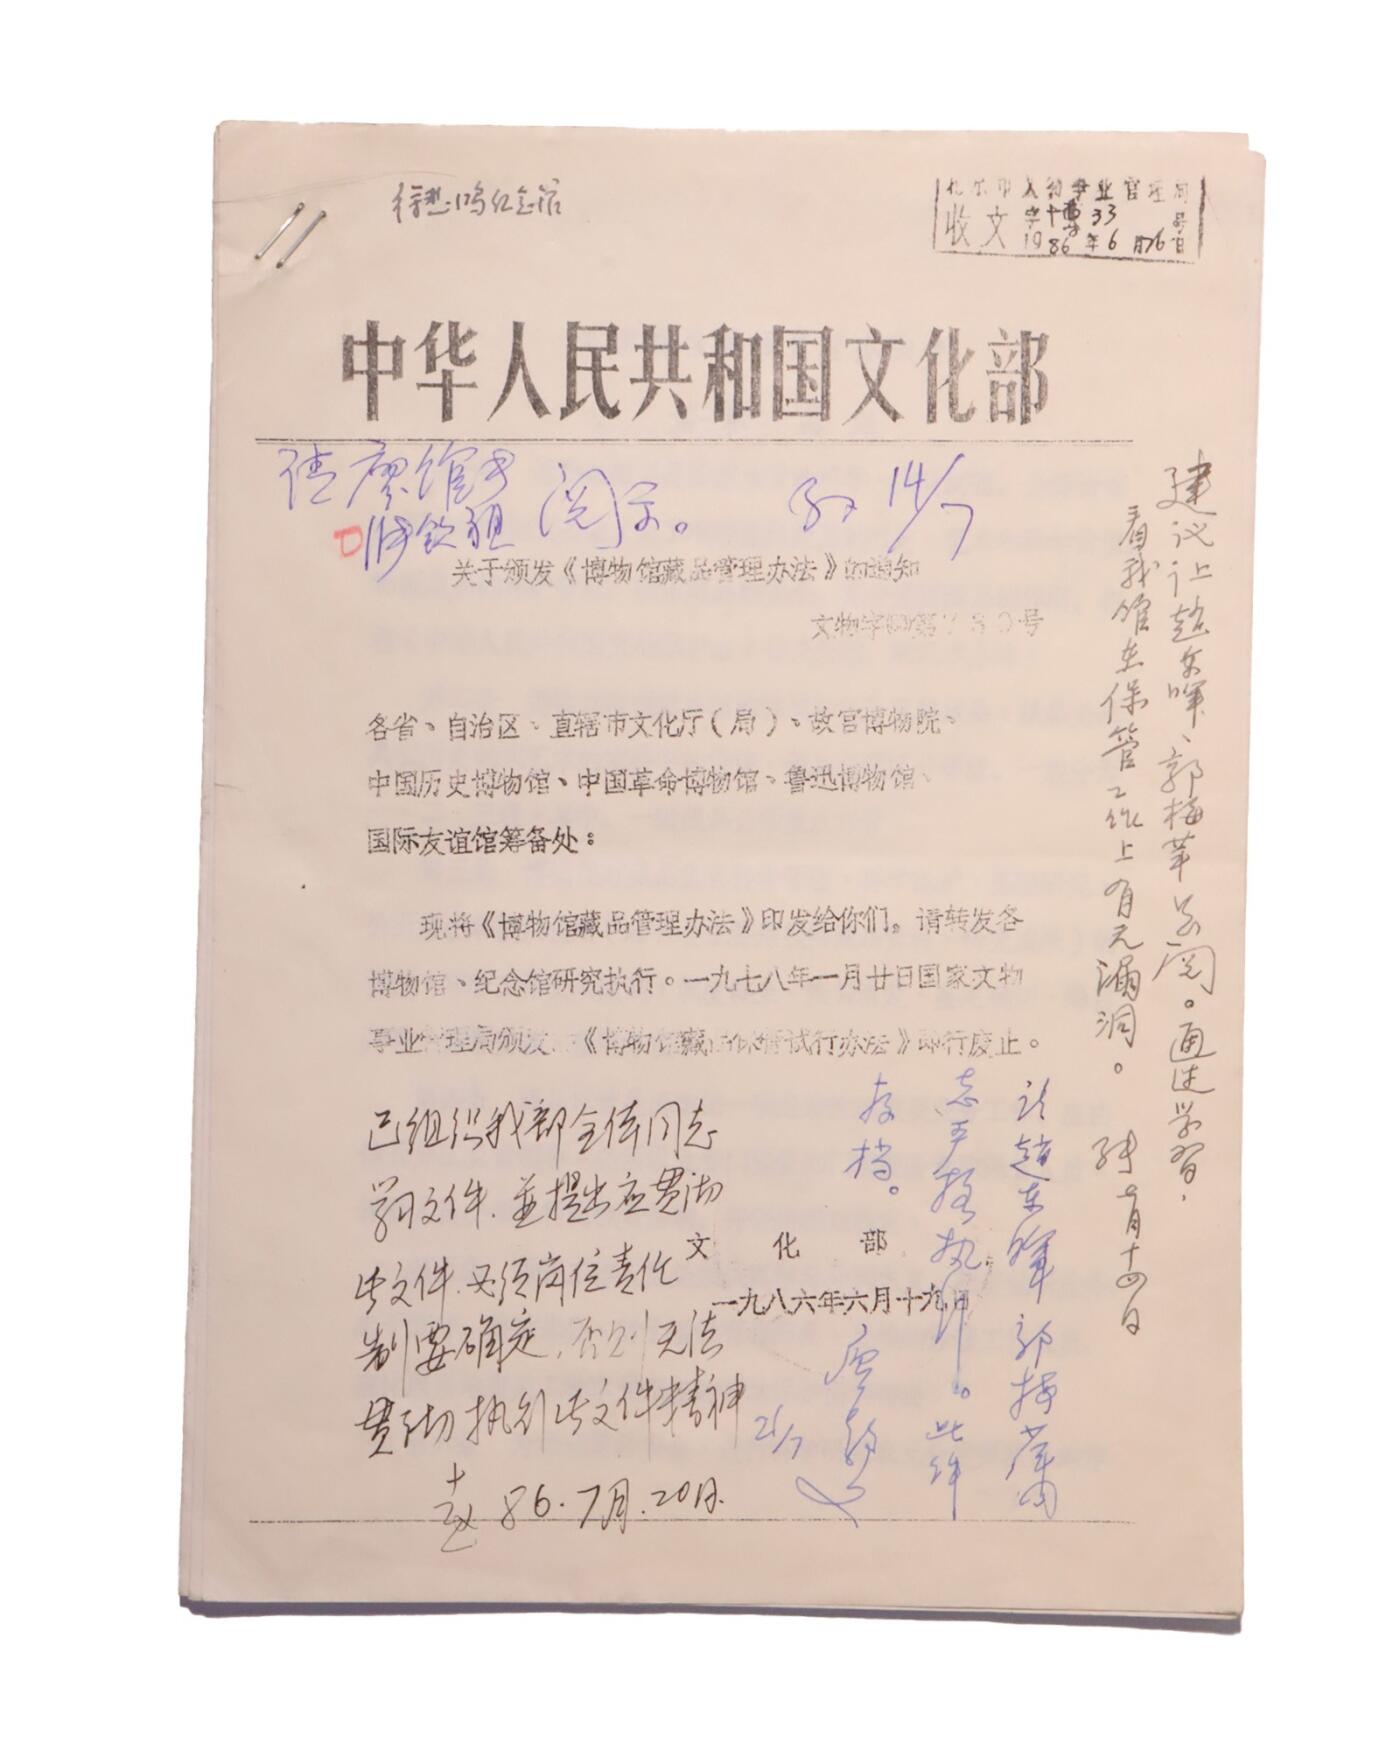 徐悲鸿纪念馆
北京市文物事业管理局
收文 字博33号
1986年6月26日
中华人民共和国文化部
请廖馆长
阅示。 14/7
关于颁发《博物馆藏品管理办法》的通知
各省、自治区、直辖市文化厅(局)、故宫博物院、
中国历史博物馆、中国革命博物馆、鲁迅博物馆、
国际友谊馆筹备处:
现将《博物馆藏品管理办法》印发给你们。请转发各
博物馆、纪念馆研究执行。一九七八年一月廿日国家文物
事业管理局颁发《博物馆藏品保管试行办法》即行废止。
文化部
一九八六年六月十九日
建议让赵东晖、郭梅苹 阅。通过学习,
看我馆在保管工作上有无漏洞。
七月十四日
已组织我部全体同志
学习文件.並提出应贯彻
此文件.必须岗位责任
制要确定.否则无法
贯彻执行此文件精神
86.7月.20日.
请赵东晖 郭梅苹同
志严格执行。此件
存档。
21/7